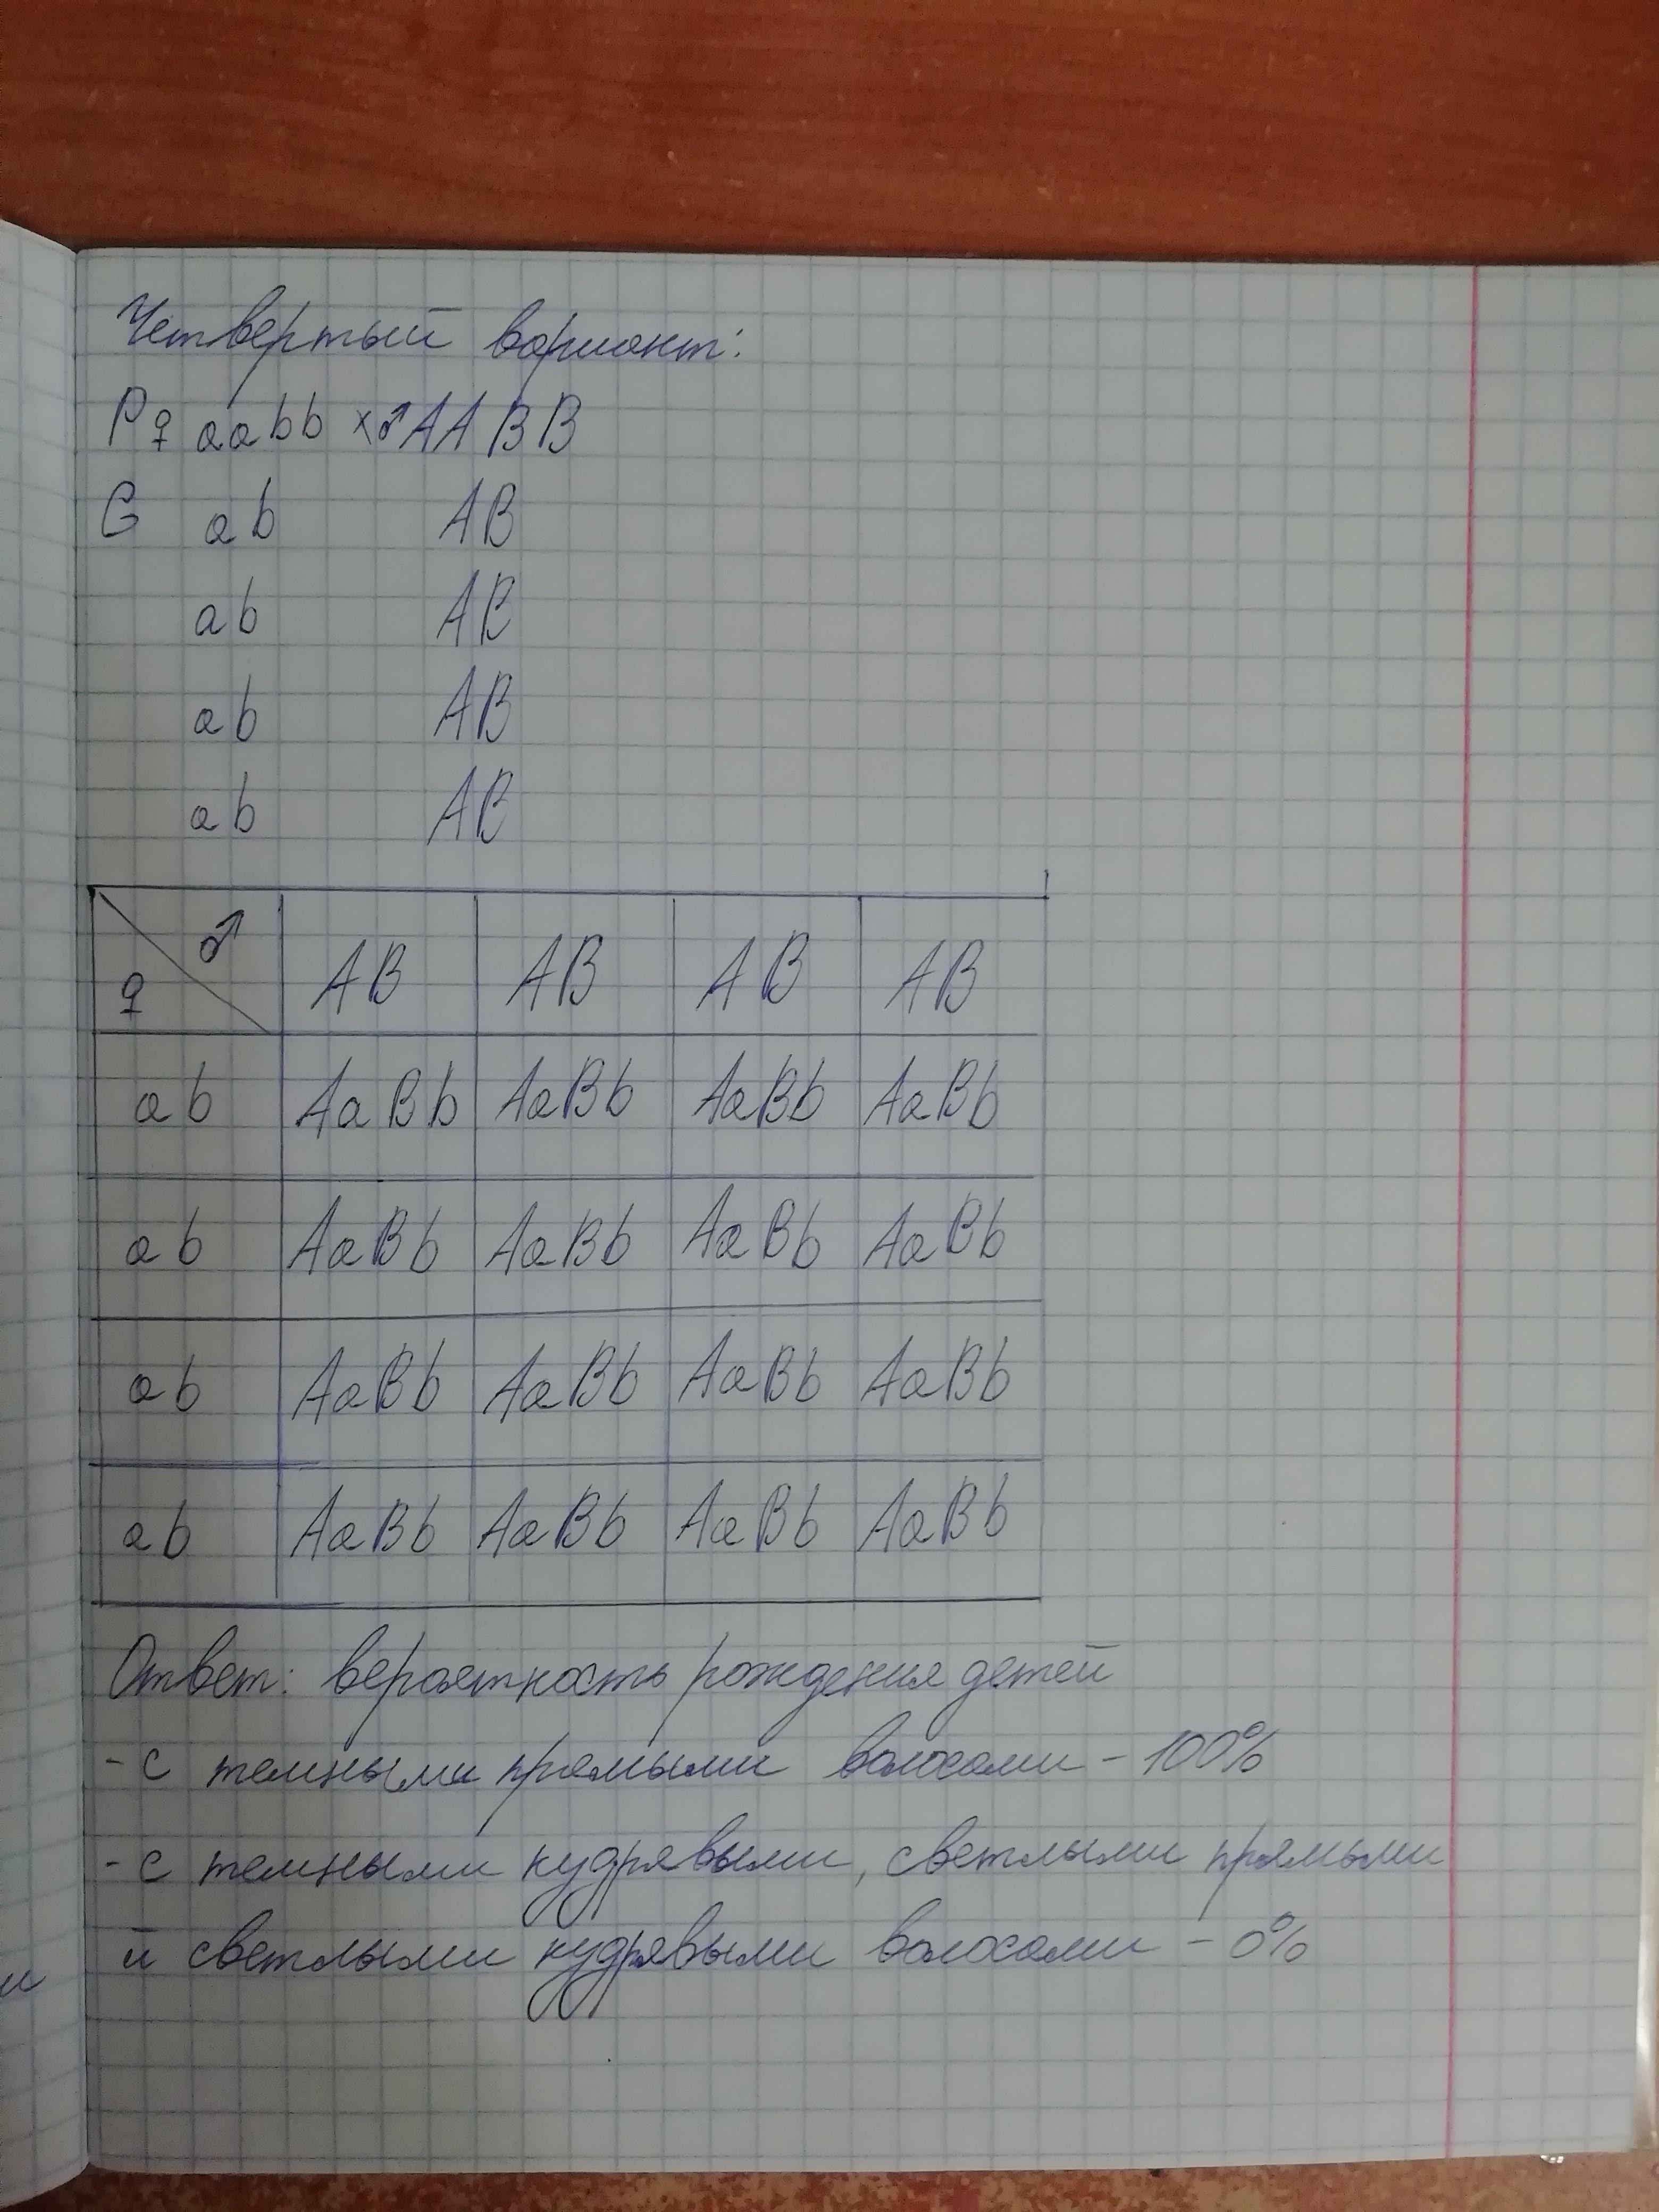 Четвертый вариант:
P ♀ aabb × ♂ AABB
G ab AB
ab AB
ab AB
ab AB
♀ ♂ AB AB AB AB
ab AaBb AaBb AaBb AaBb
ab AaBb AaBb AaBb AaBb
ab AaBb AaBb AaBb AaBb
ab AaBb AaBb AaBb AaBb
Ответ: вероятность рождения детей
- с темными прямыми волосами - 100%
- с темными кудрявыми, светлыми прямыми
и светлыми кудрявыми волосами - 0%
и